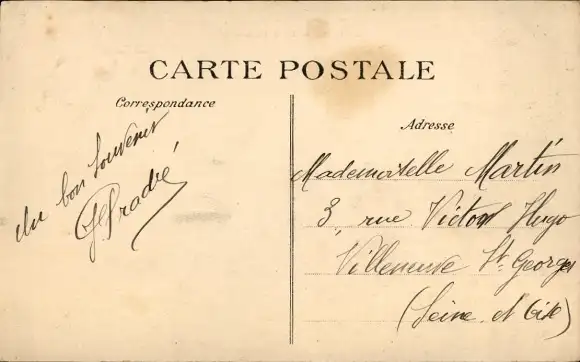 CARTE POSTALE
Correspondance
Adresse
Un bon souvenir
Pradié
Mademoiselle Martin
3, rue Victor Hugo
Villeneuve St. Georges
(Seine et Oise)